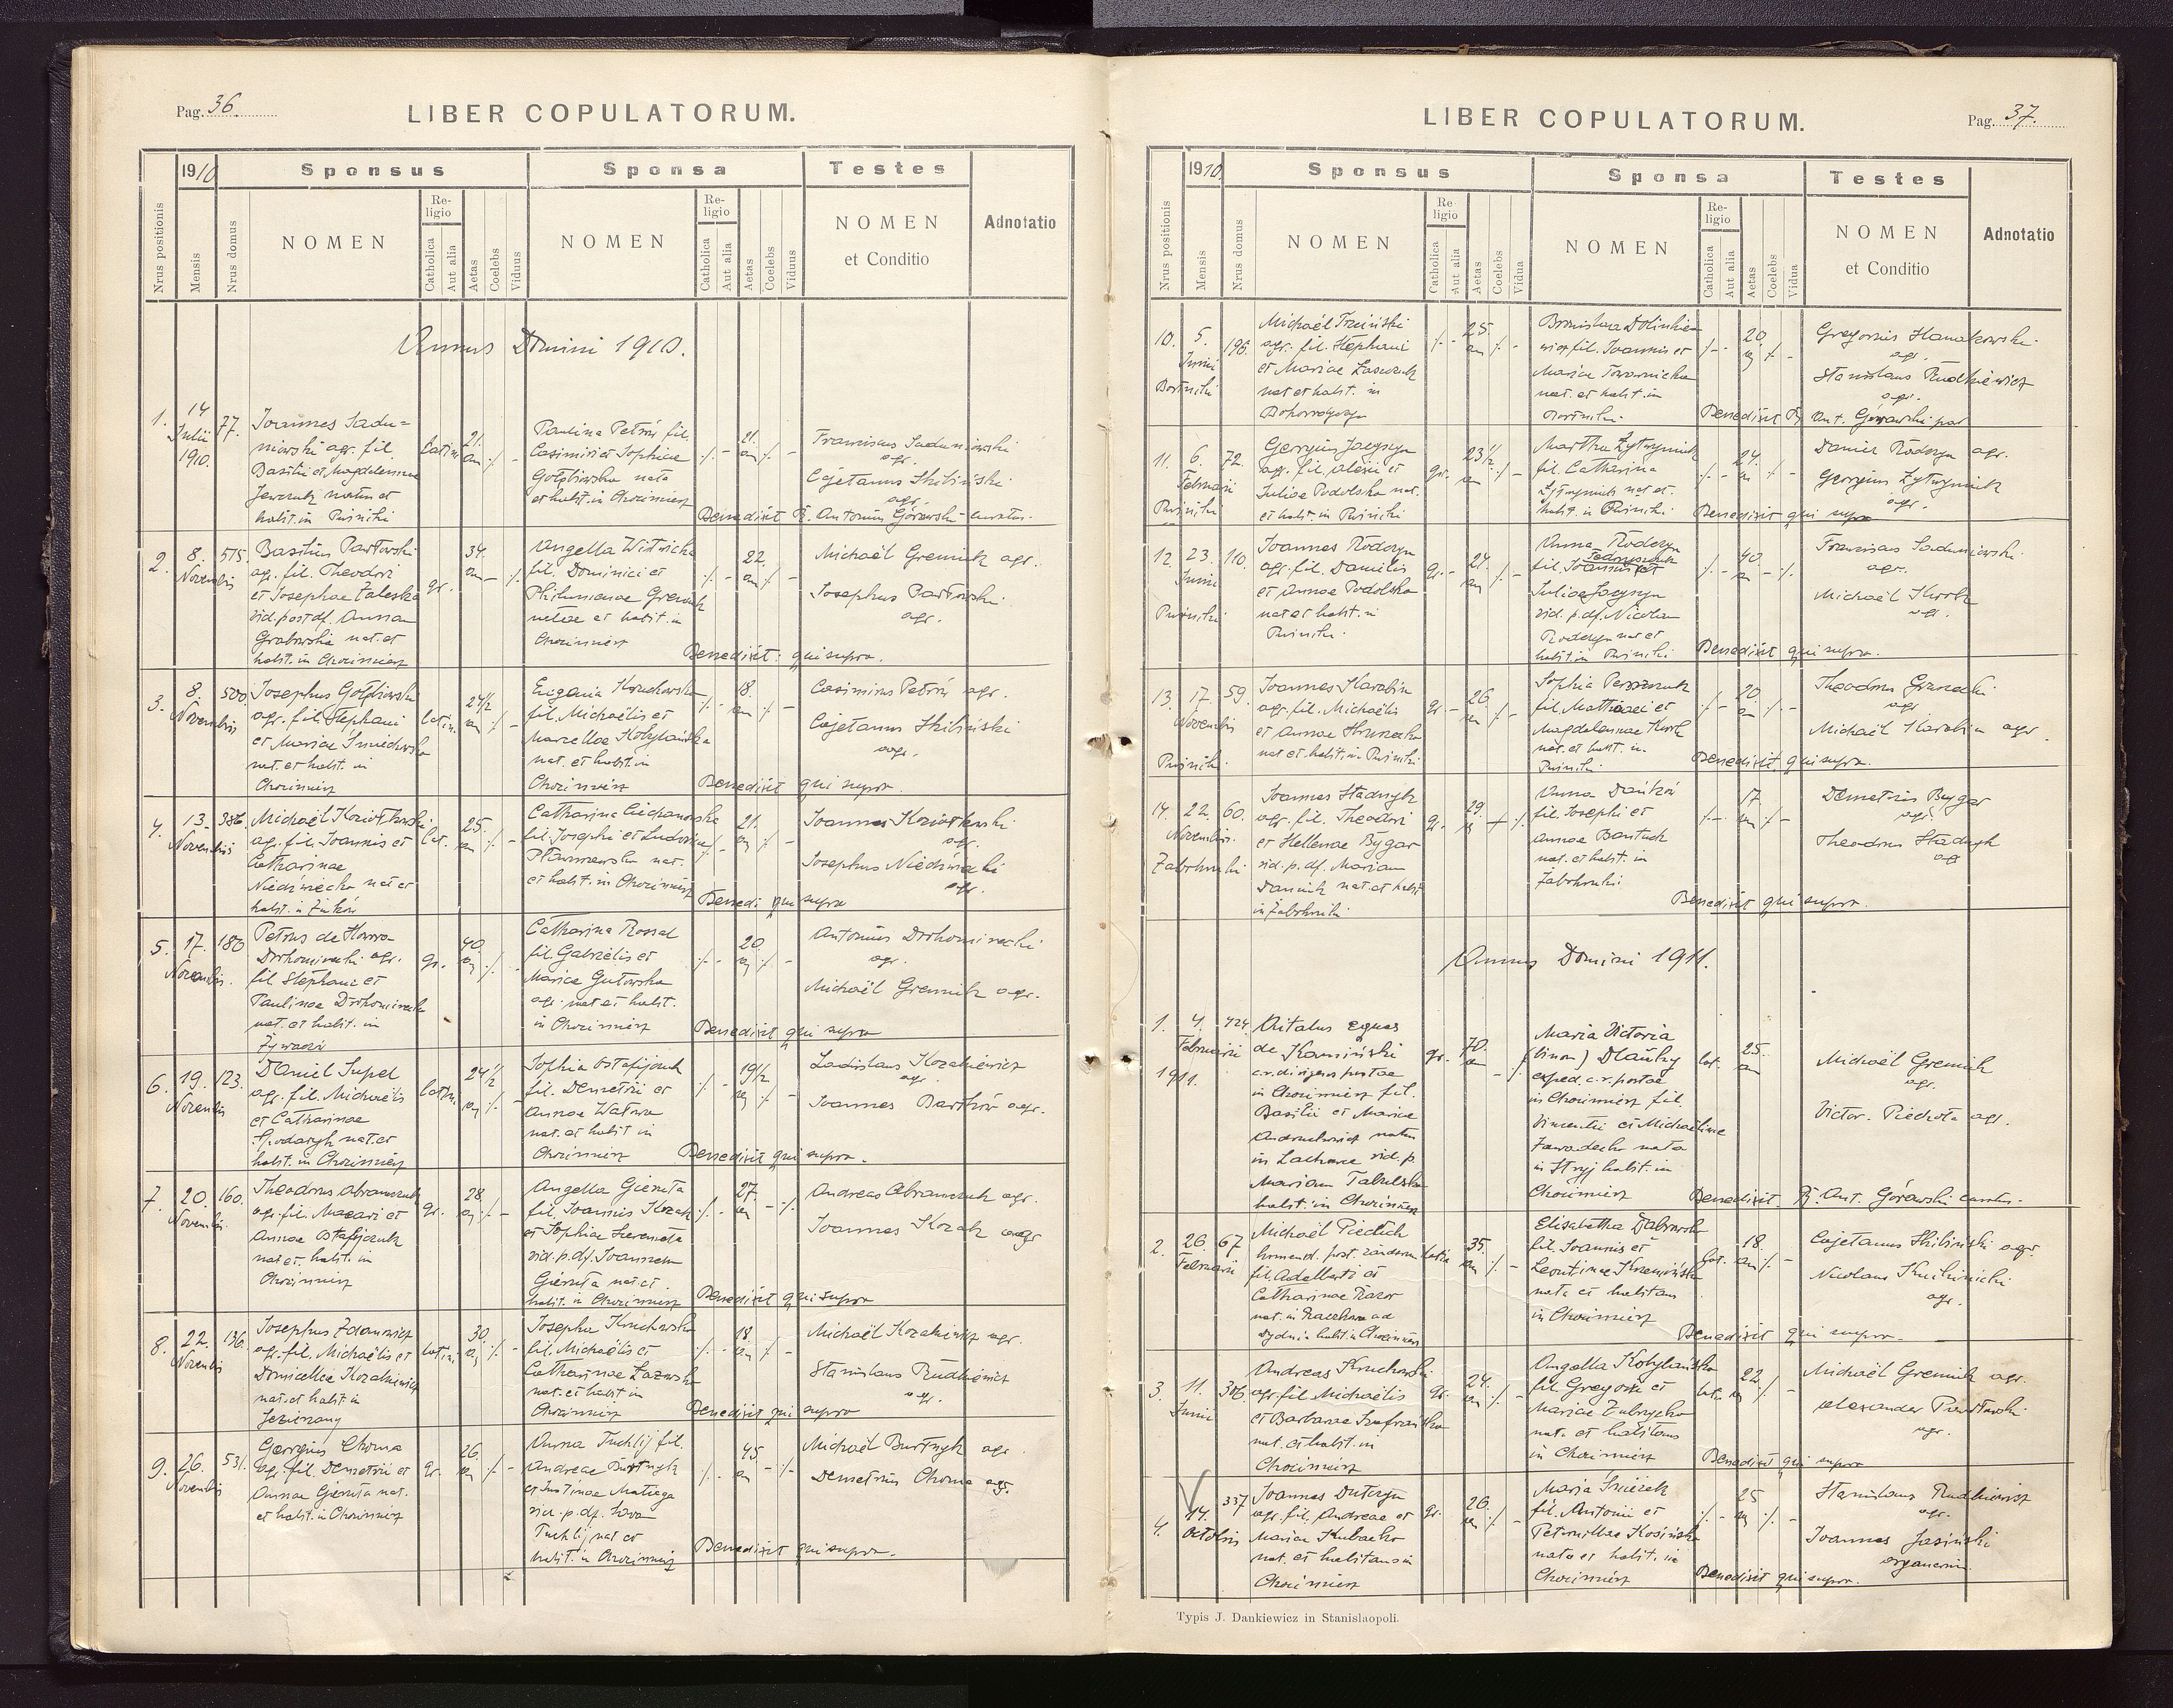 Pag. 36
LIBER COPULATORUM.
1910
Sponsus
Sponsa
Testes
Nrus positionis
Mensis
Nrus domus
NOMEN
Religio
Catholica
Aut alia
Aetas
Coelebs
Viduus
NOMEN
Religio
Catholica
Aut alia
Aetas
Coelebs
Viduus
NOMEN
et Conditio
Adnotatio
Annus Domini 1910.
1. 14 Julii 1910. 77.
Joannes Sadu=
niowski agr. fil.
Basilii et Magdalenae
natus et
habit. in
latin. 21. an
Paulina Petrów fil.
Casimiri et Sophiae
Gołębiowska nata
et habit. in Chocimierz
21. an
Franciscus Saduniowski
agr.
Cajetanus Skibiński
agr.
Benedixit R. Antonius Górawski curatus.
2. 8. Novembris 515.
Basilius Pawłowski
agr. fil. Theodori
et Josephae Zaleska
vid. post df. Annam
Grabowska nat. et
habit. in Chocimierz
gr. 34. an
Angella Witwicka
fil. Dominici et
Philumenae Greniuk
natae et habit. in
Chocimierz
22. an
Michaël Greniuk agr.
Josephus Pawłowski
agr.
Benedixit qui supra.
3. 8. Novembris 500
Josephus Gołębiowski
agr. fil. Stephani
et Mariae
nat. et habit. in
Chocimierz
latin. 24½ an
Eugenia Kruchowska
fil. Michaëlis et
Marcellae Kobylańska
nat. et habit. in
Chocimierz
18. an
Casimirus Petrów agr.
Cajetanus Skibiński
agr.
Benedixit qui supra.
4. 13. Novembris 386.
Michaël Koziołkowski
agr. fil. Joannis et
Catharinae
Niedźwiecka nat. et
habit. in Żuków
lat. 25. an
Catharina Ciechanowska
fil. Josephi et Ludovicae
nat.
et habit. in Chocimierz
21. an
Joannes Koziołkowski
agr.
Josephus Niedźwiecki
agr.
Benedi qui supra
5. 17. Novembris. 180
Petrus de Horwa
Drohomirecki agr.
fil. Stephani et
Paulinae Drohomirecka
nat. et habit. in
Żywaczów
gr. 40. an
Catharina Rossal
fil. Gabriëlis et
Mariae Gutowska
agr. nat. et habit.
in Chocimierz
20. an
Antonius Drohomirecki
agr.
Michaël Greniuk agr.
Benedixit qui supra
6. 19. Novembris 123.
Daniel Supel
agr. fil. Michaëlis
et Catharinae
Spodaryk nat. et
habit. in Chocimierz
latin. 24½ an
Sophia Ostafijczuk
fil. Demetrii et
Annae
nat. et habit in
Chocimierz
19½ an
Ladislaus Kozakiewicz
agr.
Joannes Bartków agr.
Benedixit qui supra.
7. 20. Novembris. 160.
Theodorus Abramczuk
agr. fil. Macarii et
Annae Ostafijczuk
nat. et habit. in
Chocimierz
gr. 28. an
Angella Gieruta
fil. Joannis Kozak
et Sophiae Szeremeta
vid. p. df. Joannem
Gieruta nat. et
habit. in Chocimierz
27. an
Andreas Abramczuk agr.
Joannes Kozak agr
Benedixit qui supra
8. 22. Novembris 136.
Josephus Zdanowicz
agr. fil. Michaëlis et
Domicellae Kozakiewicz
nat. et habit in
Jezierzany
latin. 30. an
Josepha Kruchowska
fil. Michaëlis et
Catharinae Łazowska
nat. et habit in
Chocimierz
18. an
Michaël Kozakiewicz agr.
Stanislaus Rudkiewicz
agr.
Benedixit qui supra
9. 26. Novembris 531.
Georgius Choma
agr. fil. Demetrii et
Annae Gieruta nat.
et habit. in Chocimierz
gr. 26. an
Anna Tuchlij fil.
Andreae Burtnyk
et Justinae Matiega
vid. p. df.
Tuchlij nat. et
habit. in Chocimierz
45 an
Michaël Burtnyk agr.
Demetrius Choma agr.
Benedixit qui supra.
LIBER COPULATORUM.
Pag. 37.
1910.
Sponsus
Sponsa
Testes
Nrus positionis
Mensis
Nrus domus
NOMEN
Religio
Catholica
Aut alia
Aetas
Coelebs
Vidua
NOMEN
Religio
Catholica
Aut alia
Aetas
Coelebs
Vidua
NOMEN
et Conditio
Adnotatio
10. 5. Junii 196.
Michaël Trzciński
agr. fil. Stephani
et Mariae
nat et habit. in
Bohorodyczyn
25. an
Bronislava Dolinkie=
wicz fil. Joannis et
Mariae Towarnicka
nat. et habit. in
Bortniki.
20. an
Gregorius Hanakowski
agr.
Stanislaus Rudkiewicz
agr.
Benedixit R. Ant. Górawski par
11. 6. Februarii 72.
Georgius Jacyszyn
agr. fil. Alexii et
Juliae Podolska nat.
et habit. in
gr. 23½ an
Martha Żytyniuk
fil. Catharina
Żytyniuk nat et.
habit. in
24. an
Daniel Fedoryn agr.
Georgius Żytyniuk
agr.
Benedixit qui supra
12. 23. Junii 110.
Joannes Fedoryn
agr. fil. Danielis
et Annae Podolska
nat et habit. in
gr. 24. an
Anna Fedoryn
fil. Joannis et
Juliae Jacyszyn
vid. p. df. Nicolaum
Fedoryn nat et
habit. in
40. an
Franciscus Saduniowski
agr.
Michaël
agr.
Benedixit qui supra.
13. 17. Novembris 59.
Joannes Karabin
agr. fil. Michaëlis
et Annae
nat et habit. in
gr. 26. an
Sophia
fil. Matthaei et
Magdalenae
nat. et habit. in.
20. an
Theodorus
agr
Michaël Karabin agr.
Benedixit qui supra.
14. 22. Novembris. 60.
Joannes Stadnyk
agr. fil. Theodori
et Hellenae Bygar
vid. p. df. Mariam
nat. et habit
in Zabokruki
gr. 29. an
Anna
fil. Josephi et
Annae
nat. et habit. in
Zabokruki
17. an
Demetrius Bygar
agr.
Theodorus Stadnyk
agr
Benedixit qui supra.
Annus Domini 1911.
1. 4. Februarii 1911. 424.
Vitalus eques
de Kamiński
c. r. dirigens postae
in Chocimierz fil.
Basilii et Mariae
natus
in vid. p.
Mariam
habit. in Chocimierz
gr. 70. an
Maria Victoria
(binom) Dlauhy
exped. c. r. postae
in Chocimierz fil.
Vincentii et Michaëlinae
Zawadecka nata
in Stryj habit. in
Chocimierz
lat. 25. an
Michaël Greniuk
agr.
Victor. Piechota agr.
Benedixit R. Ant. Górawski curatus.
2. 26 Februarii 67
Michaël Piedlich
fil. Adelberti et
Catharinae Razor
nat. in
habit. in Chocimierz
latin 35. an
Elisabetha Dąbrowska
fil. Joannis et
Leontinae Krzemińska
nata et habitans
in Chocimierz
lat. 18. an
Cajetanus Skibiński agr.
Nicolaus
agr.
Benedixit qui supra.
3. 11. Junii 306
Andreas Kruchowski
agr. fil. Michaëlis
et Barbarae Szafrańska
nat. et habit. in
Chocimierz
gr. 24. an
Angella Kobylańska
fil. Gregorii et
Mariae Zubrycka
nat. et habitans
in Chocimierz
lat. 22. an
Michaël Greniuk agr.
Alexander Pawłowski
agr.
Benedixit qui supra
4. 14. Octobris 337
Joannes Dutczyn
agr. fil. Andreae et
Mariae Kubacka
nat. et habitans in
Chocimierz
gr. 26. an
Maria Śnieżek
fil. Antonii et
Petronellae Kosińska
nata et habit. in
Chocimierz
25 an
Stanislaus Rudkiewicz
agr.
Joannes Jasiński
organarius
Benedixit qui supra.
Typis J. Dankiewicz in Stanislaopoli.